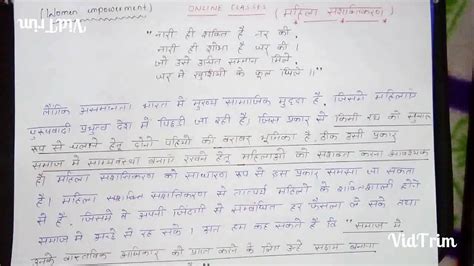 (Women empowerment) ONLINE CLASSES (महिला सशक्तिकरण)
"नारी ही शक्ति है नर की,
नारी ही शोभा है घर की।
जो उसे उचित सम्मान मिले,
घर में खुशियों के फूल खिले ।।"
लैंगिक असमानता भारत में मुख्य सामाजिक मुद्दा है, जिसमें महिलाएं
पुरुषवादी प्रभुत्व देश में पिछड़ती जा रही है। जिस प्रकार से किसी रथ को सुचारू
रूप से चलाने हेतु दोनों पहियों की बराबर भूमिका है, ठीक उसी प्रकार
समाज में साम्यवस्था बनाये रखने हेतु महिलाओं को सशक्त करना आवश्यक
है। महिला सशक्तिकरण को साधारण रूप से इस प्रकार समझा जा सकता
है। महिला सशक्तिकरण से तात्पर्य महिलाओं के शक्तिशाली होने
से है, जिसमें वे अपनी जिंदगी से सम्बन्धित हर फैसला ले सके तथा
समाज में अच्छे से रह सकें। अतः हम कह सकते हैं कि "समाज में
उनके वास्तविक अधिकार को प्राप्त करने के लिए उन्हें सक्षम बनाना
VidTrim
VidTrim